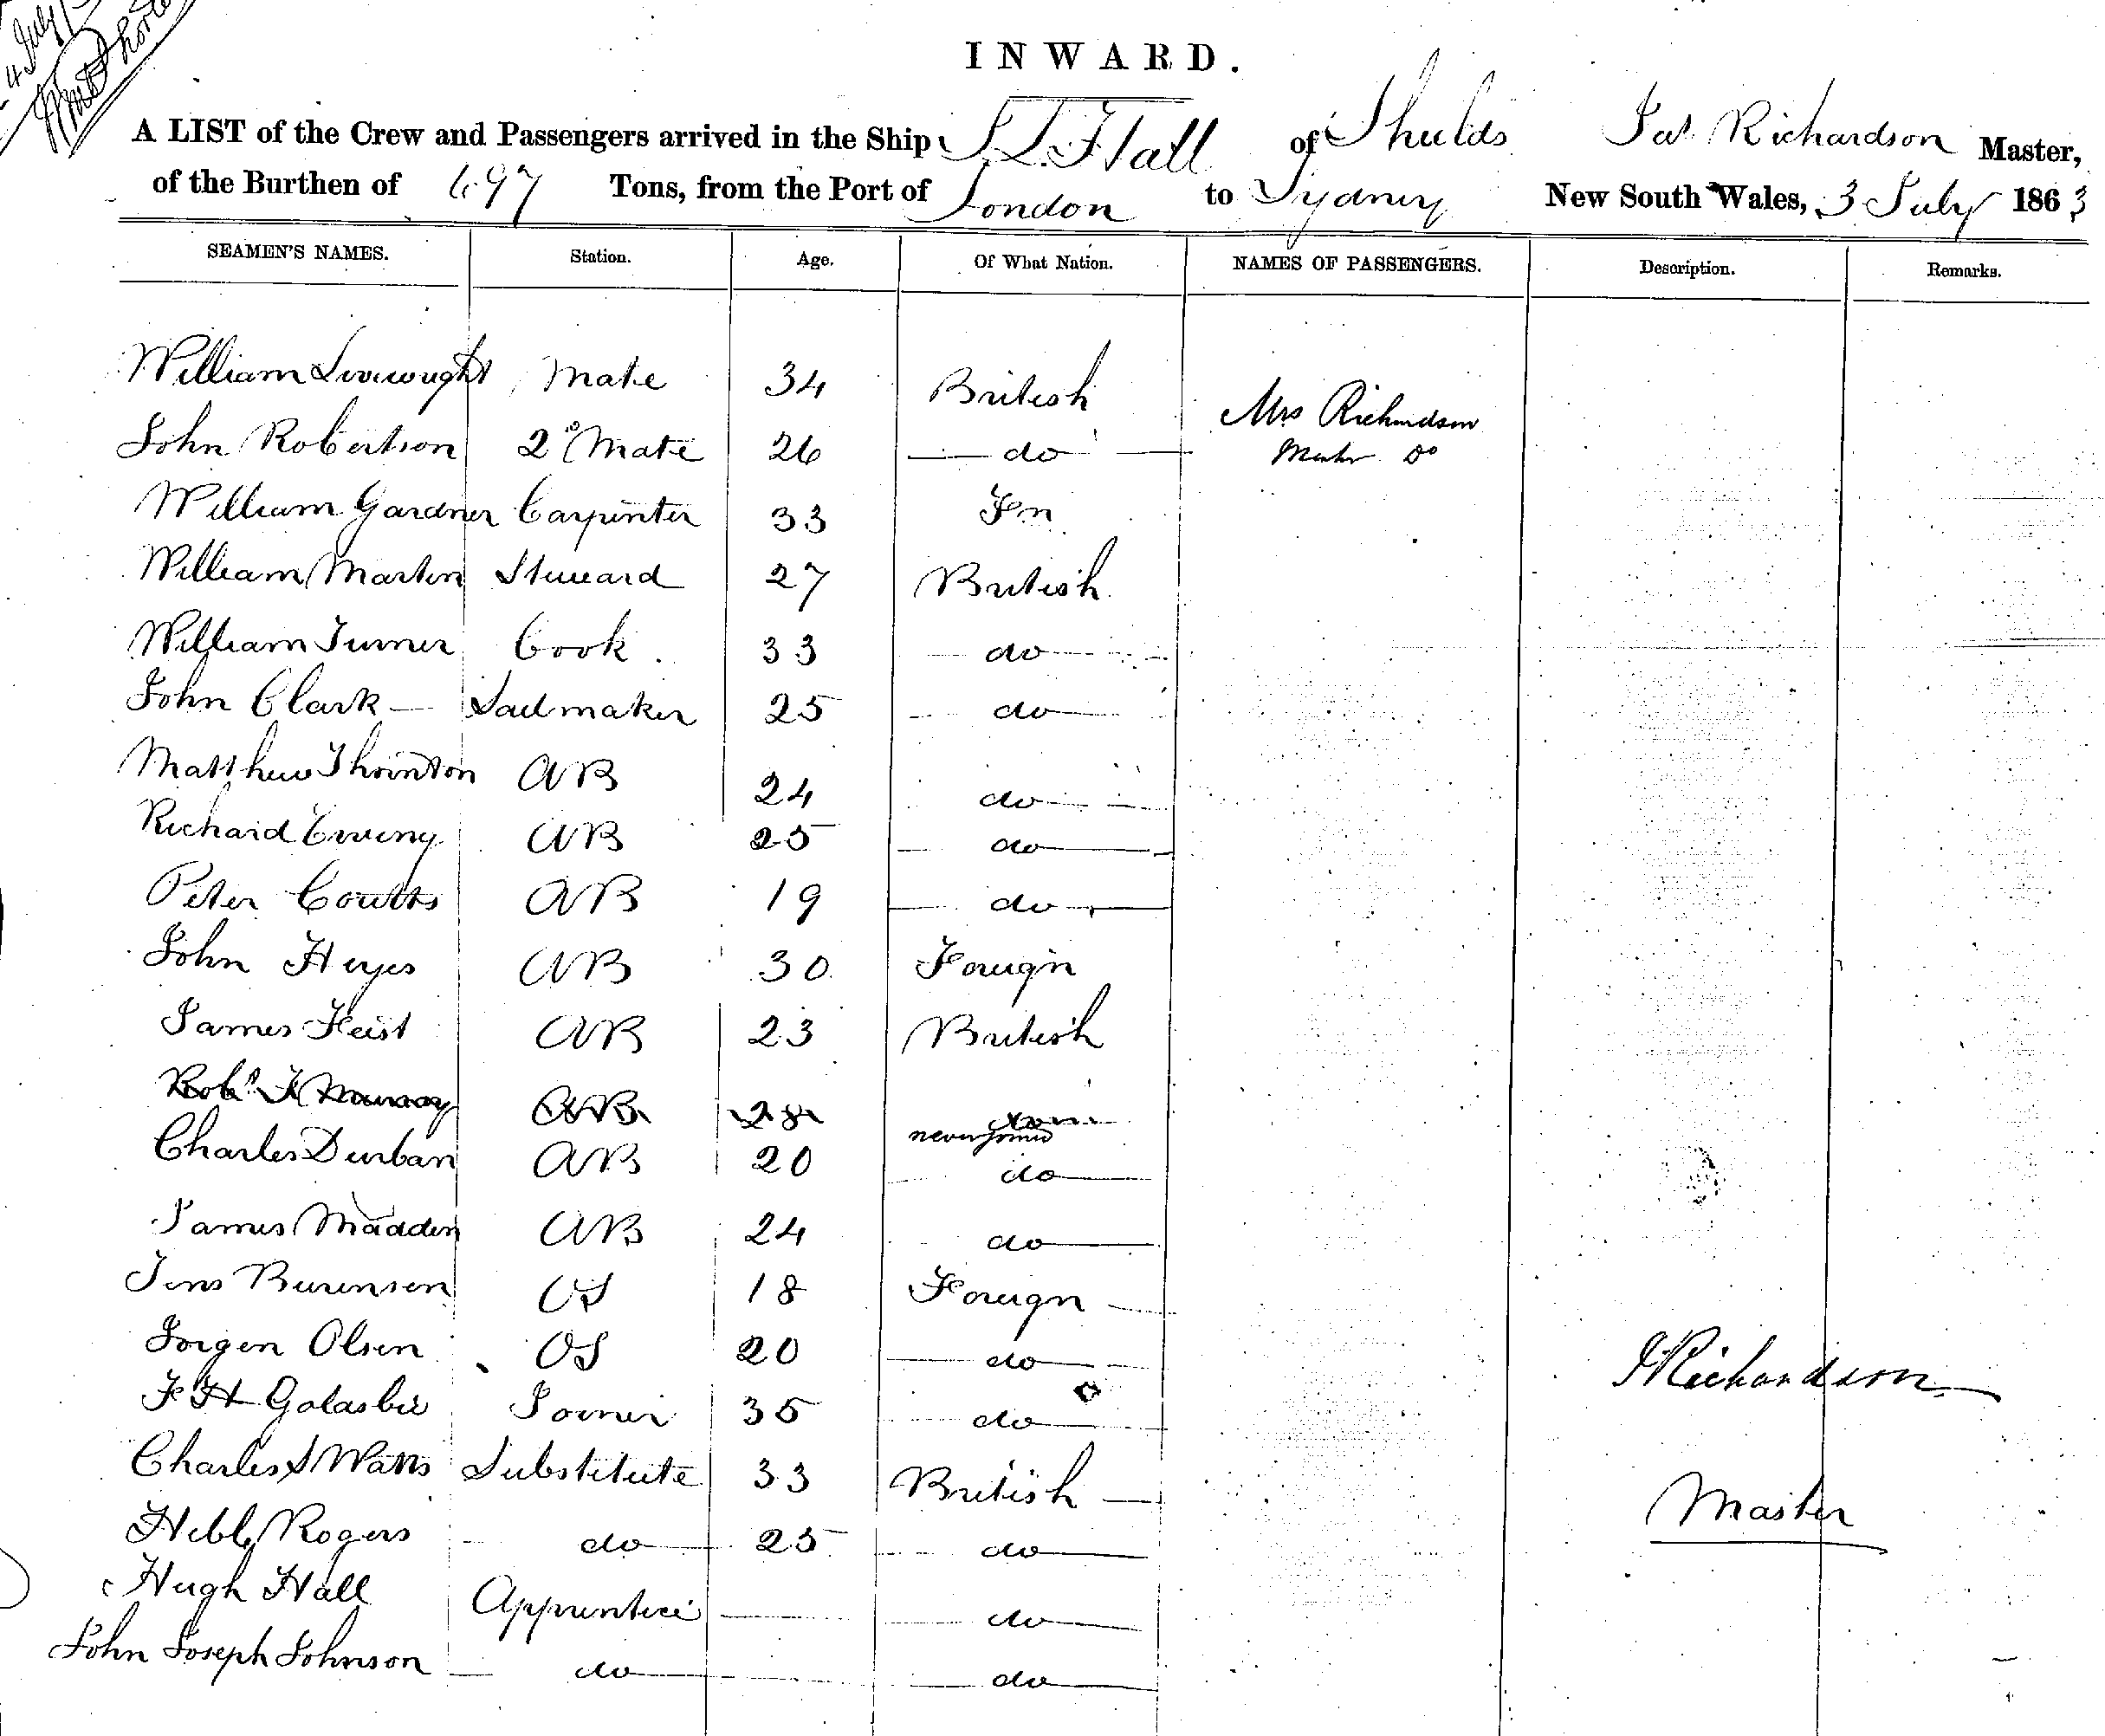 4 July
INWARD.
A LIST of the Crew and Passengers arrived in the Ship J. L. Hall of Shields Jas. Richardson Master,
of the Burthen of 697 Tons, from the Port of London to Sydney New South Wales, 3 July 1863
SEAMEN'S NAMES. Station. Age. Of What Nation. NAMES OF PASSENGERS. Description. Remarks.
William Mate 34 British Mrs Richardson
John Robertson 2d Mate 26 do Do
William Gardner Carpenter 33 Fn
William Martin Steward 27 British
William Turner Cook 33 do
John Clark Sailmaker 25 do
Matthew Thornton AB 24 do
Richard Ewing AB 25 do
Peter Coutts AB 19 do
John Heyes AB 30 Foreign
James Feist AB 23 British
Robt. Murray AB 28 do never joined
Charles Durban AB 20 do
James Madden AB 24 do
Jens OS 18 Foreign
Jorgen Olsen OS 20 do
F H Joiner 35 do
J Richardson
Charles S Watts Substitute 33 British
Master
Rogers do 25 do
Hugh Hall Apprentice do
John Joseph Johnson do do